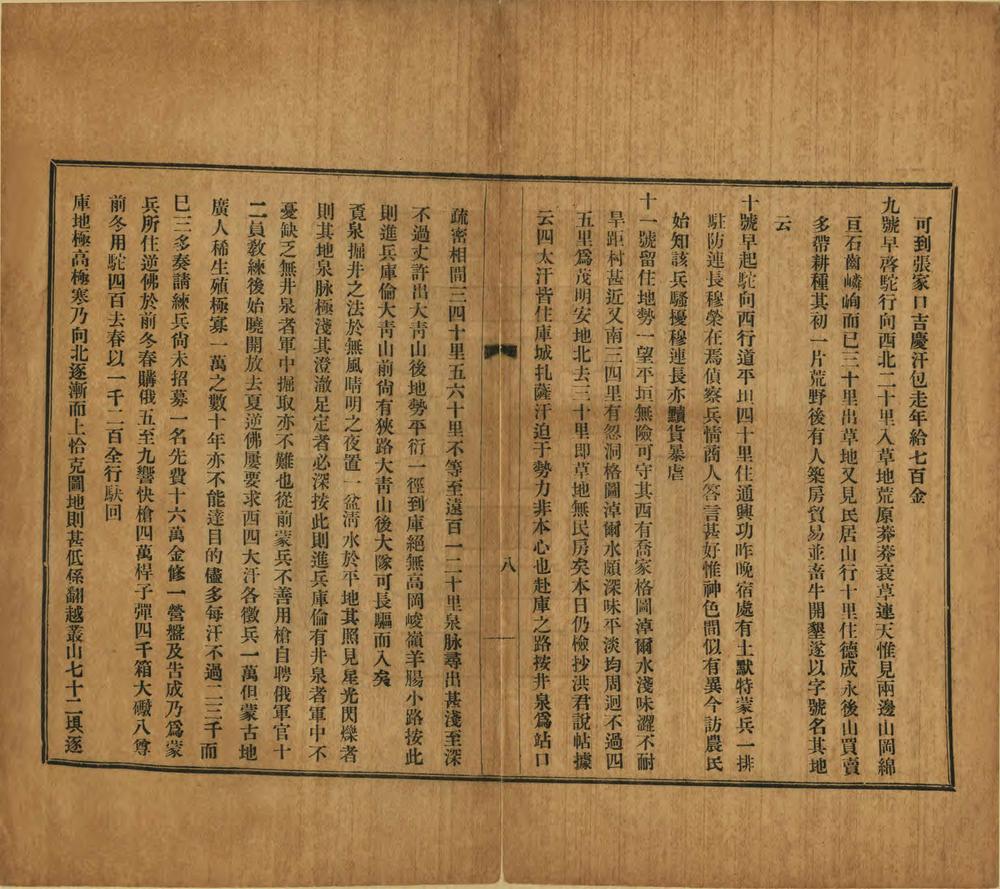 可到張家口吉慶汗包走年給七百金
九號早啓駝行向西北二十里入草地荒原莽莽衰草連天惟見兩邊山岡綿
亘石齒嶙峋而已三十里出草地又見民居山行十里住德成永後山買賣
多帶耕種其初一片荒野後有人築房貿易並畜牛開墾遂以字號名其地
云
十號早起駝向西行道平坦四十里住通興功昨晚宿處有土默特蒙兵一排
駐防連長穆榮在焉偵察兵情商人答言甚好惟神色間似有異今訪農民
始知該兵騷擾穆連長亦黷貨暴虐
十一號留住地勢一望平垣無險可守其西有喬家格圖淖爾水淺味澀不耐
旱距村甚近又南三四里有忽洞格圖淖爾水頗深味平淡均周迴不過四
五里爲茂明安地北去三十里即草地無民房矣本日仍檢抄洪君說帖據
云四大汗皆住庫城扎薩汗迫于勢力非本心也赴庫之路按井泉爲站口
八
疏密相間三四十里五六十里不等至遠百一二十里泉脉尋出甚淺至深
不過丈許出大青山後地勢平衍一徑到庫絕無高岡峻嶺羊腸小路按此
則進兵庫倫大青山前尙有狹路大青山後大隊可長驅而入矣
覔泉掘井之法於無風晴明之夜置一盆淸水於平地其照見星光閃爍者
則其地泉脉極淺其澄澈足定者必深按此則進兵庫倫有井泉者軍中不
憂缺乏無井泉者軍中掘取亦不難也從前蒙兵不善用槍自聘俄軍官十
二員敎練後始曉開放去夏逆佛屢要求西四大汗各徵兵一萬但蒙古地
廣人稀生殖極寡一萬之數十年亦不能達目的儘多每汗不過二三千而
巳三多奏請練兵尙未招募一名先費十六萬金修一營盤及告成乃爲蒙
兵所住逆佛於前冬春購俄五至九響快槍四萬桿子彈四千箱大礮八尊
前冬用駝四百去春以一千二百全行馱回
庫地極高極寒乃向北逐漸而上恰克圖地則甚低係翻越叢山七十二垻逐